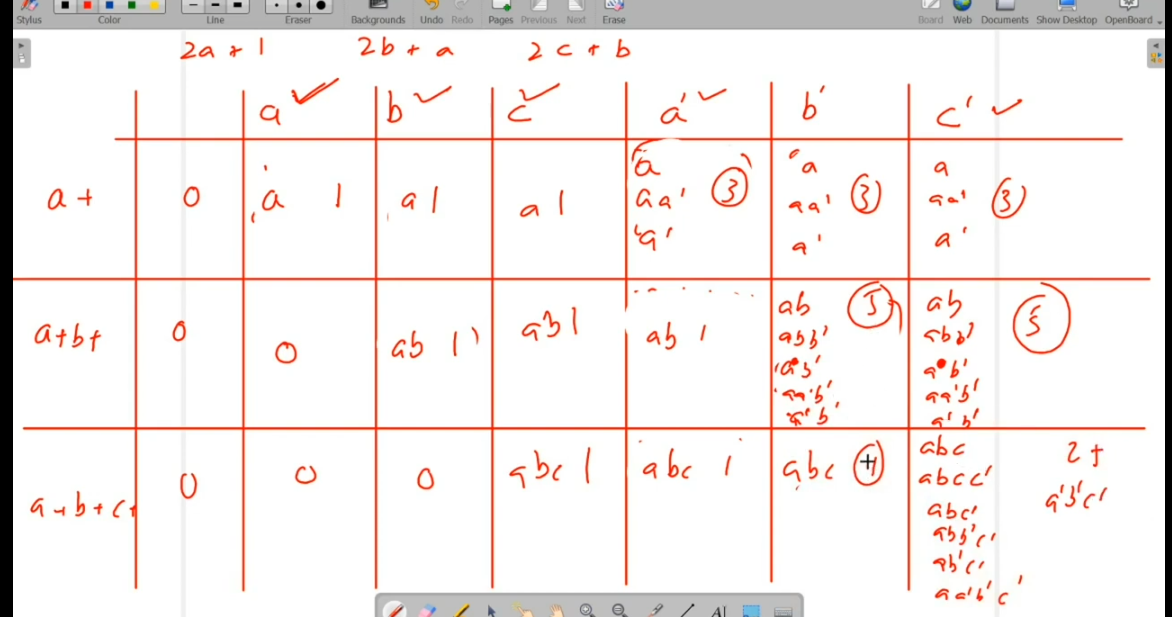 Stylus Color Line Eraser Backgrounds Undo Redo Pages Previous Next Erase Board Web Documents Show Desktop OpenBoard
2a + 1 2b + a 2c + b
a b c a' b' c'
a+ 0 a 1 a 1 a 1 a a a
aa' 3 aa' 3 aa' 3
a' a' a'
a+b+ 0 0 ab 1 ab 1 ab 1 ab 5 ab 5
abb' abb'
ab' ab'
aa'b' aa'b'
a'b' a'b'
a+b+c+ 0 0 0 abc 1 abc 1 abc 1 abc 2 5
abcc' a'b'c'
abc'
abb'c'
ab'c'
aa'b'c'